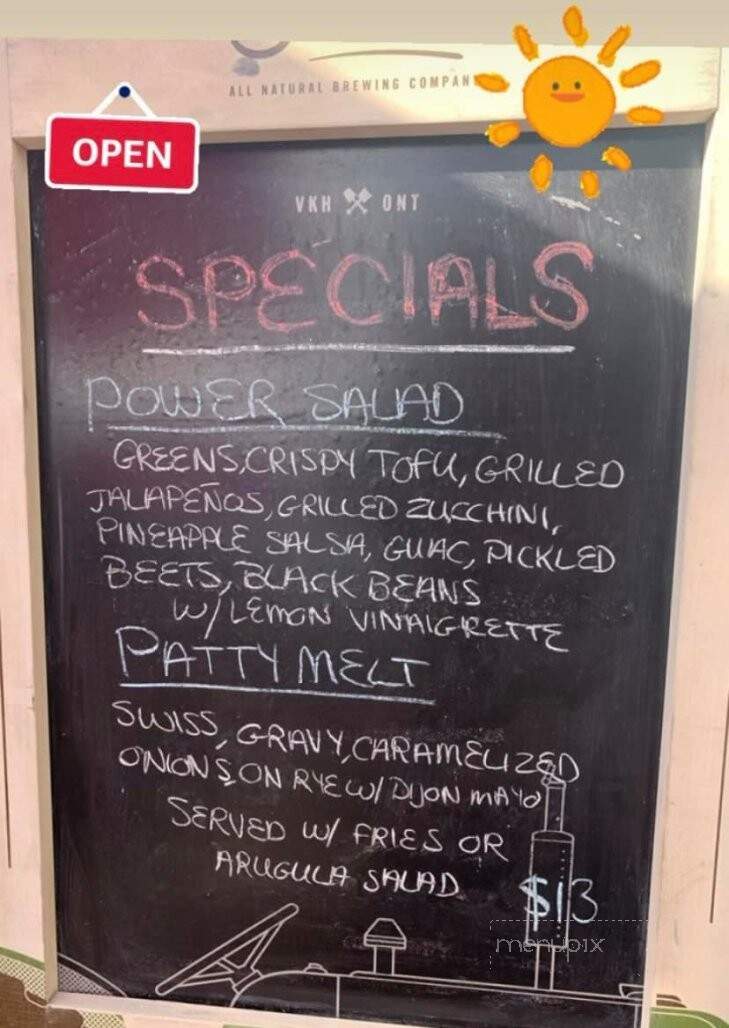 ALL NATURAL BREWING COMPAN
OPEN
VKH ONT
SPECIALS
POWER SALAD
GREENS, CRISPY TOFU, GRILLED
JALAPEÑOS, GRILLED ZUCCHINI,
PINEAPPLE SALSA, GUAC, PICKLED
BEETS, BLACK BEANS
W/ LEMON VINAIGRETTE
PATTY MELT
SWISS, GRAVY, CARAMELIZED
ONIONS, ON RYE W/ DIJON MAYO
SERVED W/ FRIES OR
ARUGULA SALAD
$13
menupix